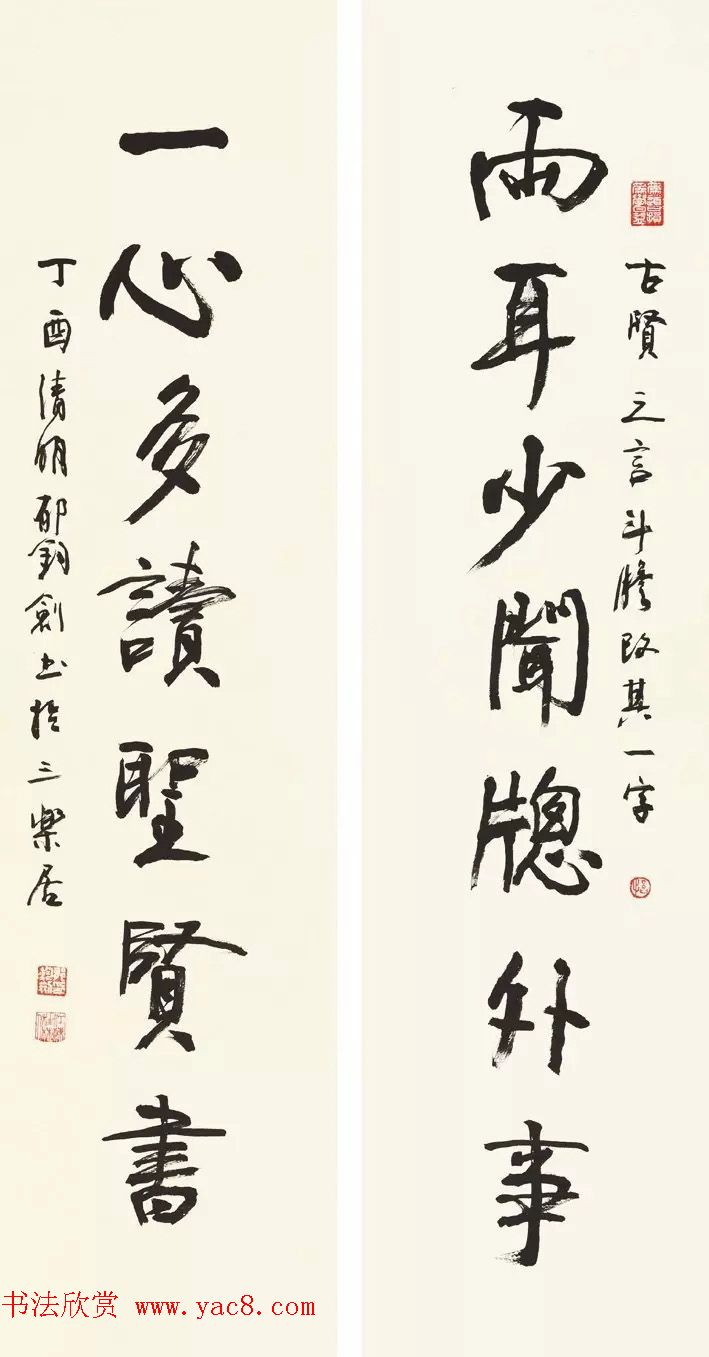 古賢之言斗膽改其一字
兩耳少聞牕外事
一心多讀聖賢書
丁酉清明郁鈞劍书於三樂居
书法欣赏 www.yac8.com